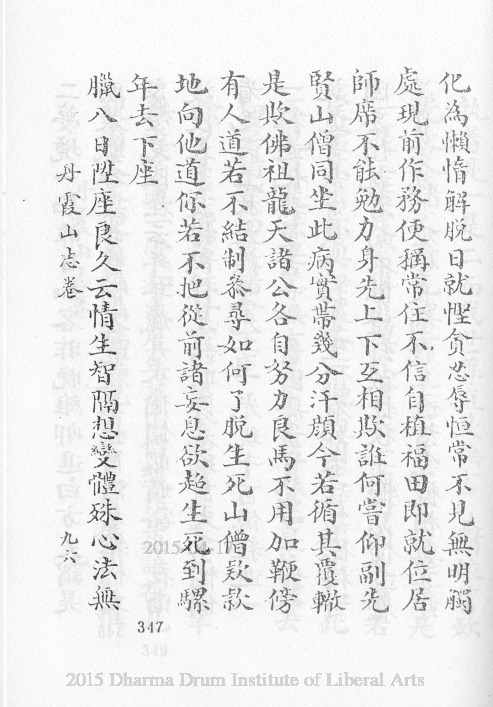 化為懶惰解脫日就慳貪忍辱恒常不見無明觸
處現前作務便稱常住不信自植福田即就位居
師席不能勉力身先上下互相欺誰何嘗仰副先
賢山僧同坐此病實帶幾分汗顏今若循其覆轍
是欺佛祖龍天諸公各自努力良馬不用加鞭傍
有人道若不結制恭尋如何了脫生死山僧款款
地向他道你若不把從前諸妄息欲超生死到騾
年去下座
臘八日陞座良久云情生智隔想變體殊心法無
丹霞山志卷 九六
347
2015 Dharma Drum Institute of Liberal Arts